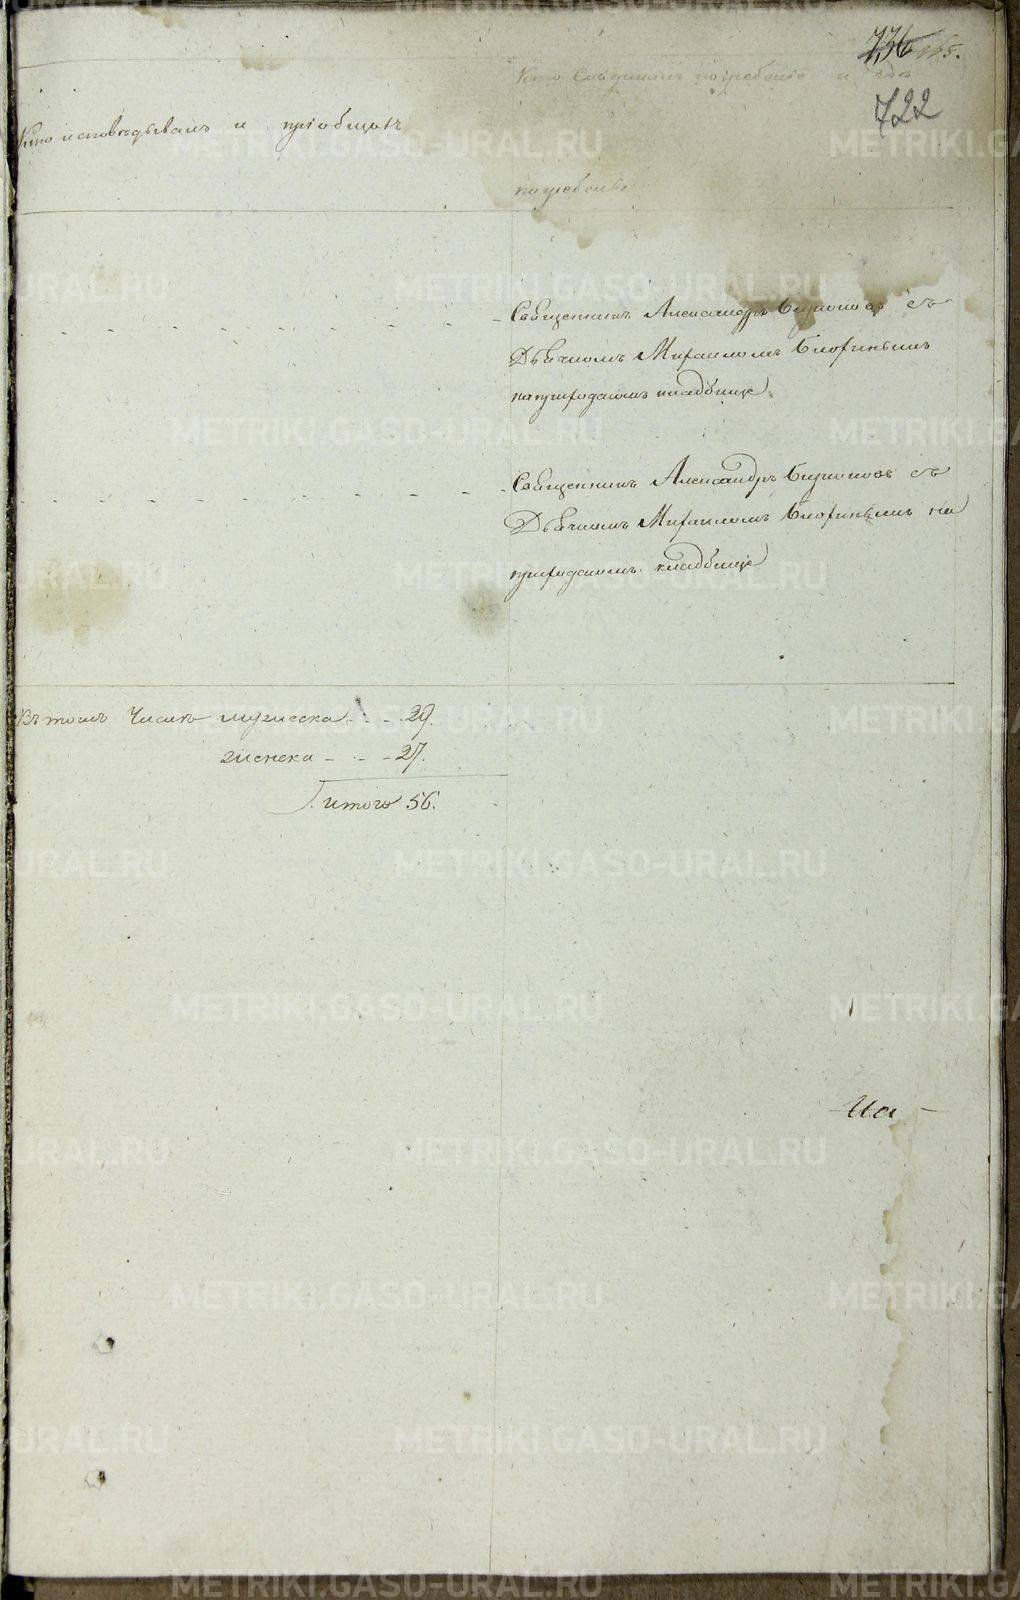 736 115.
722
Кто исповѣдывалъ и пріобщалъ
Кто совершалъ погребеніе и гдѣ
погребены
Священникъ Александръ съ
Дьячкомъ Михаиломъ
на приходскомъ кладбище
Священникъ Александръ съ
Дьячкомъ Михаиломъ на
приходскомъ кладбище
Въ томъ числѣ мужеска - - - 29.
женска - - - 27.
итого 56.
- На -
METRIKI.GASO-URAL.RU